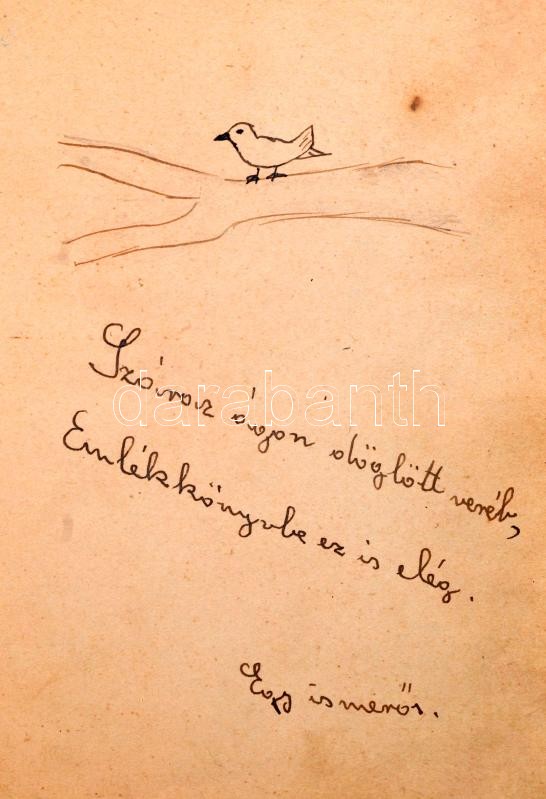 Száraz ágon döglött veréb,
Emlékkönyvbe ez is elég.
Egy ismerős.
darabanth